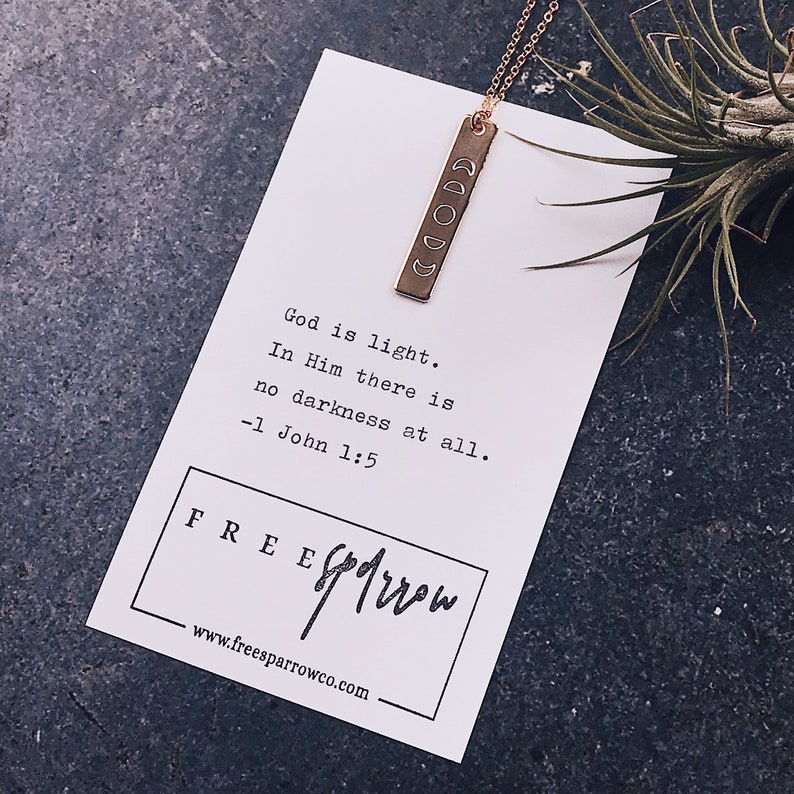 God is light.
In Him there is
no darkness at all.
-1 John 1:5
FREE sparrow
www.freesparrowco.com